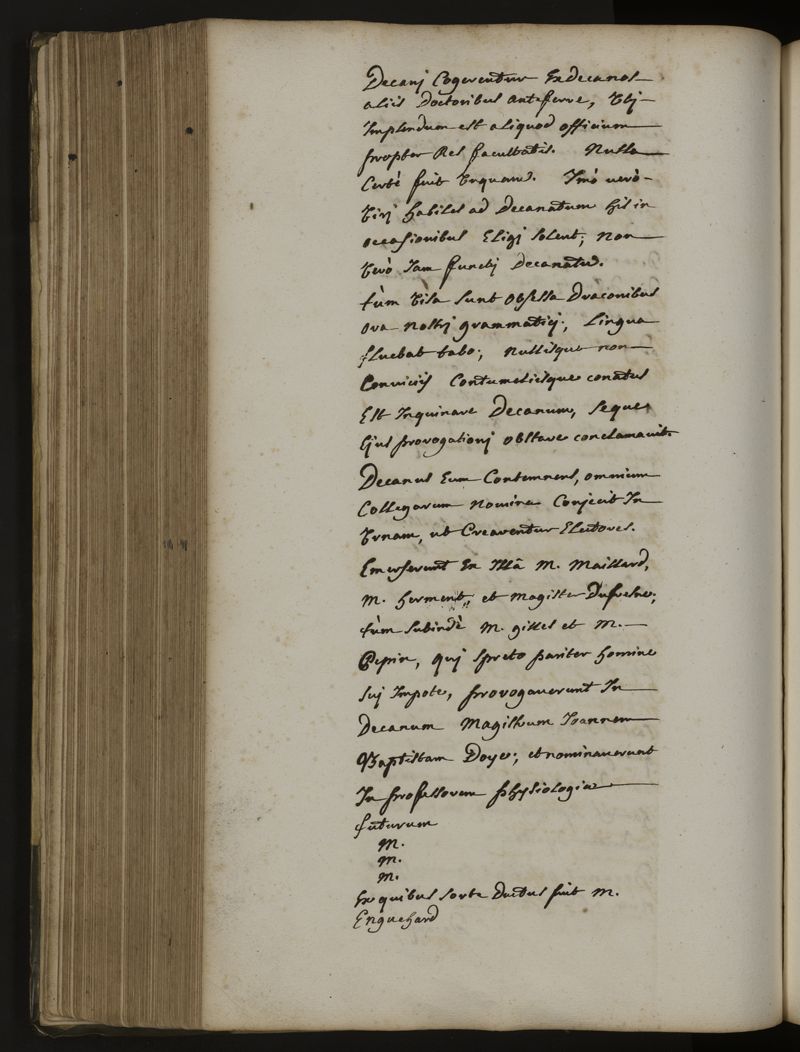 Decanj Cogerentur Exdecanos
aliis Doctoribus anteferre, Ubj
Implendum est aliquod officium
propter Res facultatis. Nulla
Certè fuit Unquam. Imò verò
Virj habiles ad Decanatum his in
occasionibus Eligj solent; non
Verò Jam functj Decanatu.
tùm Visa sunt obsessa Draconibus
ora nostrj grammaticj; Lingua
fluebat tabo; nullisque non
Conviciis Contumeliisque conatus
Est Inquinare Decanum, seque
Ejus prorogationj obstare conclamavit
Decanus Eum Contemnens, omnium
Collegarum nomina Conjecit In
Urnam, ut Crearentur Electores.
Emerserunt Ex Illâ M. Maillard,
M. herment, et magister Dufresne;
tùm subindè M. gilles et M.
Pepin, quj spreto pariter homine
suj Impote, prorogaverunt In
Decanum Magistrum Joannem
Baptistam Doye; et nominaverunt
In professorem physiologiae
futurum
M.
M.
M.
Ex quibus sorte Ductus fuit M.
Enguehard